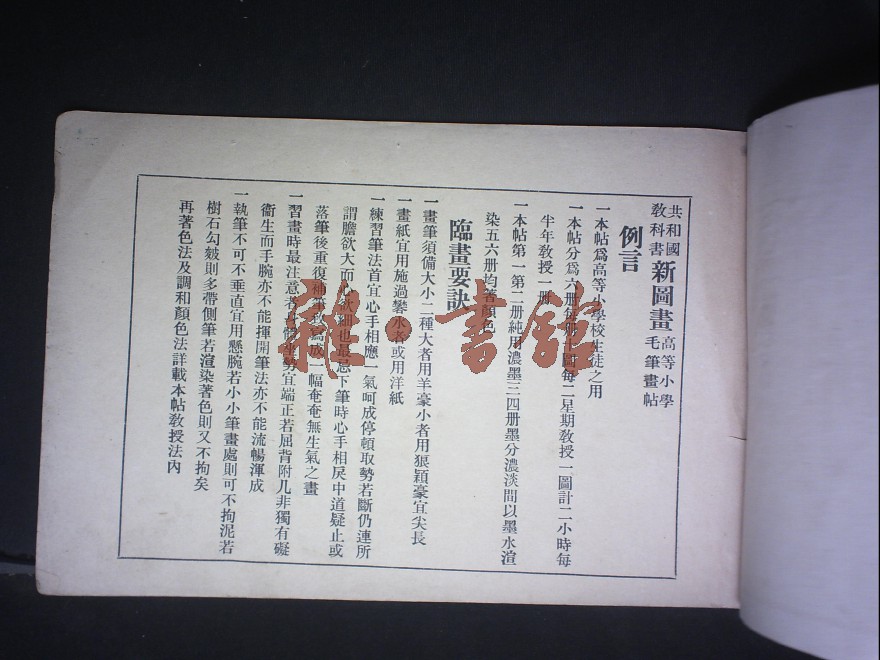 共和國教科書 新圖畫 高等小學毛筆畫帖
例言
一本帖爲高等小學校生徒之用
一本帖分爲六册每册十圖每二星期教授一圖計二小時每
半年教授一册
一本帖第一第二册純用濃墨三四册墨分濃淡間以墨水渲
染五六册均著顏色
臨畫要訣
一畫筆須備大小二種大者用羊毫小者用狼穎毫宜尖長
一畫紙宜用施過礬水者或用洋紙
一練習筆法首宜心手相應一氣呵成停頓取勢若斷仍連所
謂膽欲大而心欲細也最忌下筆時心手相戾中道疑止或
落筆後重復補筆致寫成一幅奄奄無生氣之畫
一習畫時最注意者身體坐勢宜端正若屈背附几非獨有礙
衞生而手腕亦不能揮開筆法亦不能流暢渾成
一執筆不可不垂直宜用懸腕若小小筆畫處則可不拘泥若
樹石勾皴則多帶側筆若渲染著色則又不拘矣
再著色法及調和顏色法詳載本帖教授法內
雜·書館